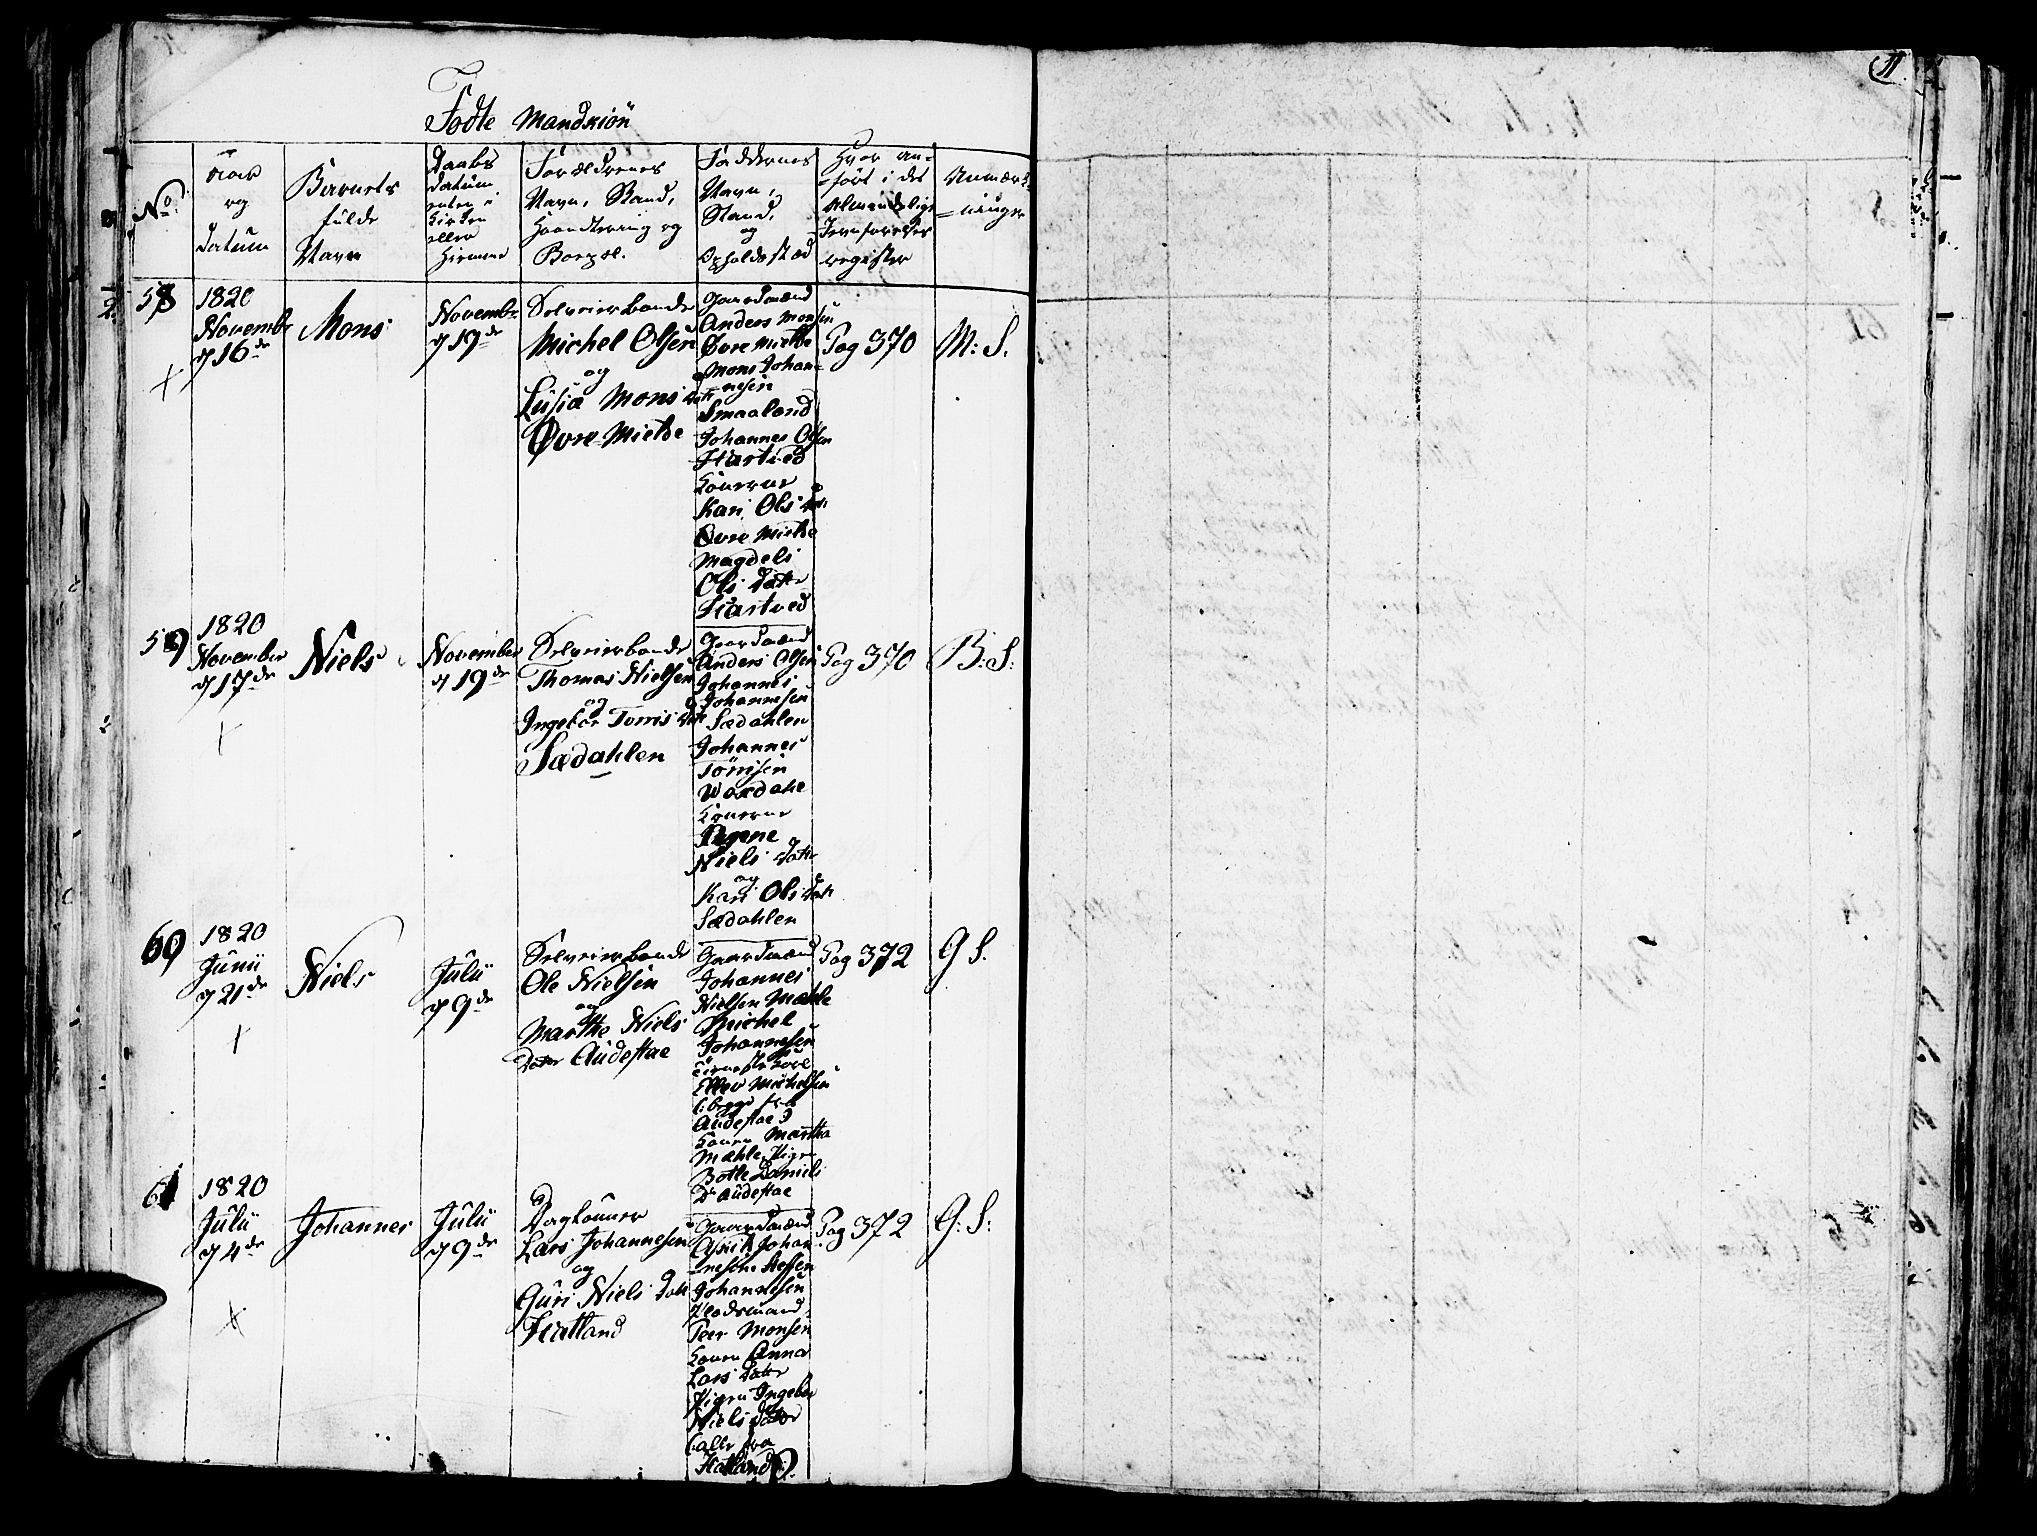 11.
Fødte Mandkiön
No.
Aar
og
Datum
Barnets
fulde
Navn
Daabs
Datum
enten i
Kirken
eller
Hiemme
Forældrenes
Navn, Stand,
Haandtering og
Boepæl.
Faddernes
Navn,
Stand,
og
Opholdssted
Hvor an=
=ført i det
Almindelige
Jevnførelses
register
Anmærk=
=ninger
58
1820
Novembr
d 16de
Mons
Novembr
d 19de
Selveierbonde
Michel Olsen
og
Lusia Mons datr
Øvre Mielde
Gaardmænd
Anders Monsen
Øvre Mielde
Mons Johan=
=nesen
Smaaland
Johannes Olsen
Hartved
Konerne
Kari Ols datr
Øvre Mielde
Magdeli
Ols dater
Hartved
Pag 370
M: S.
59
1820
November
d 17de
Niels
November
d 19de
Selveierbonde
Thomas Nielsen
og
Ingebor Torris datr
Sædahlen
Gaardmænd
Anders Olsen
Johannes
Johannesen
Sædahlen
Johannes
Törrisen
Waxdahl
Konerne
Niels dater
og
Kari Ols datr
Sædahlen
Pag 370
B: S:
60
1820
Junii
d 21de
Niels
Julii
d 9de
Selveierbonde
Ole Nielsen
og
Marthe Niels
Dater Audestae
Gaardmænd
Johannes
Nielsen Mæhle
Michel
Johannesen
Eller Michelsen
(: begge fra
Audestae :)
Konen Martha
Mæhle, Pigen
Botle Daniels
Dr Audestae
Pag 372
G S.
61
1820
Julii
d 4de
Johannes
Julii
d 9de
Lars Johannesen
og
Guri Niels Datr
Hatland
Gaardmænd
Johan
=nesen Steffen
Johannesen
Pladsmand
Peer Monsen
Konen Anna
Lars Dater
Pigen Ingebor
Niels dater
(: alle fra
Hatland :)
Pag 372
G: S: